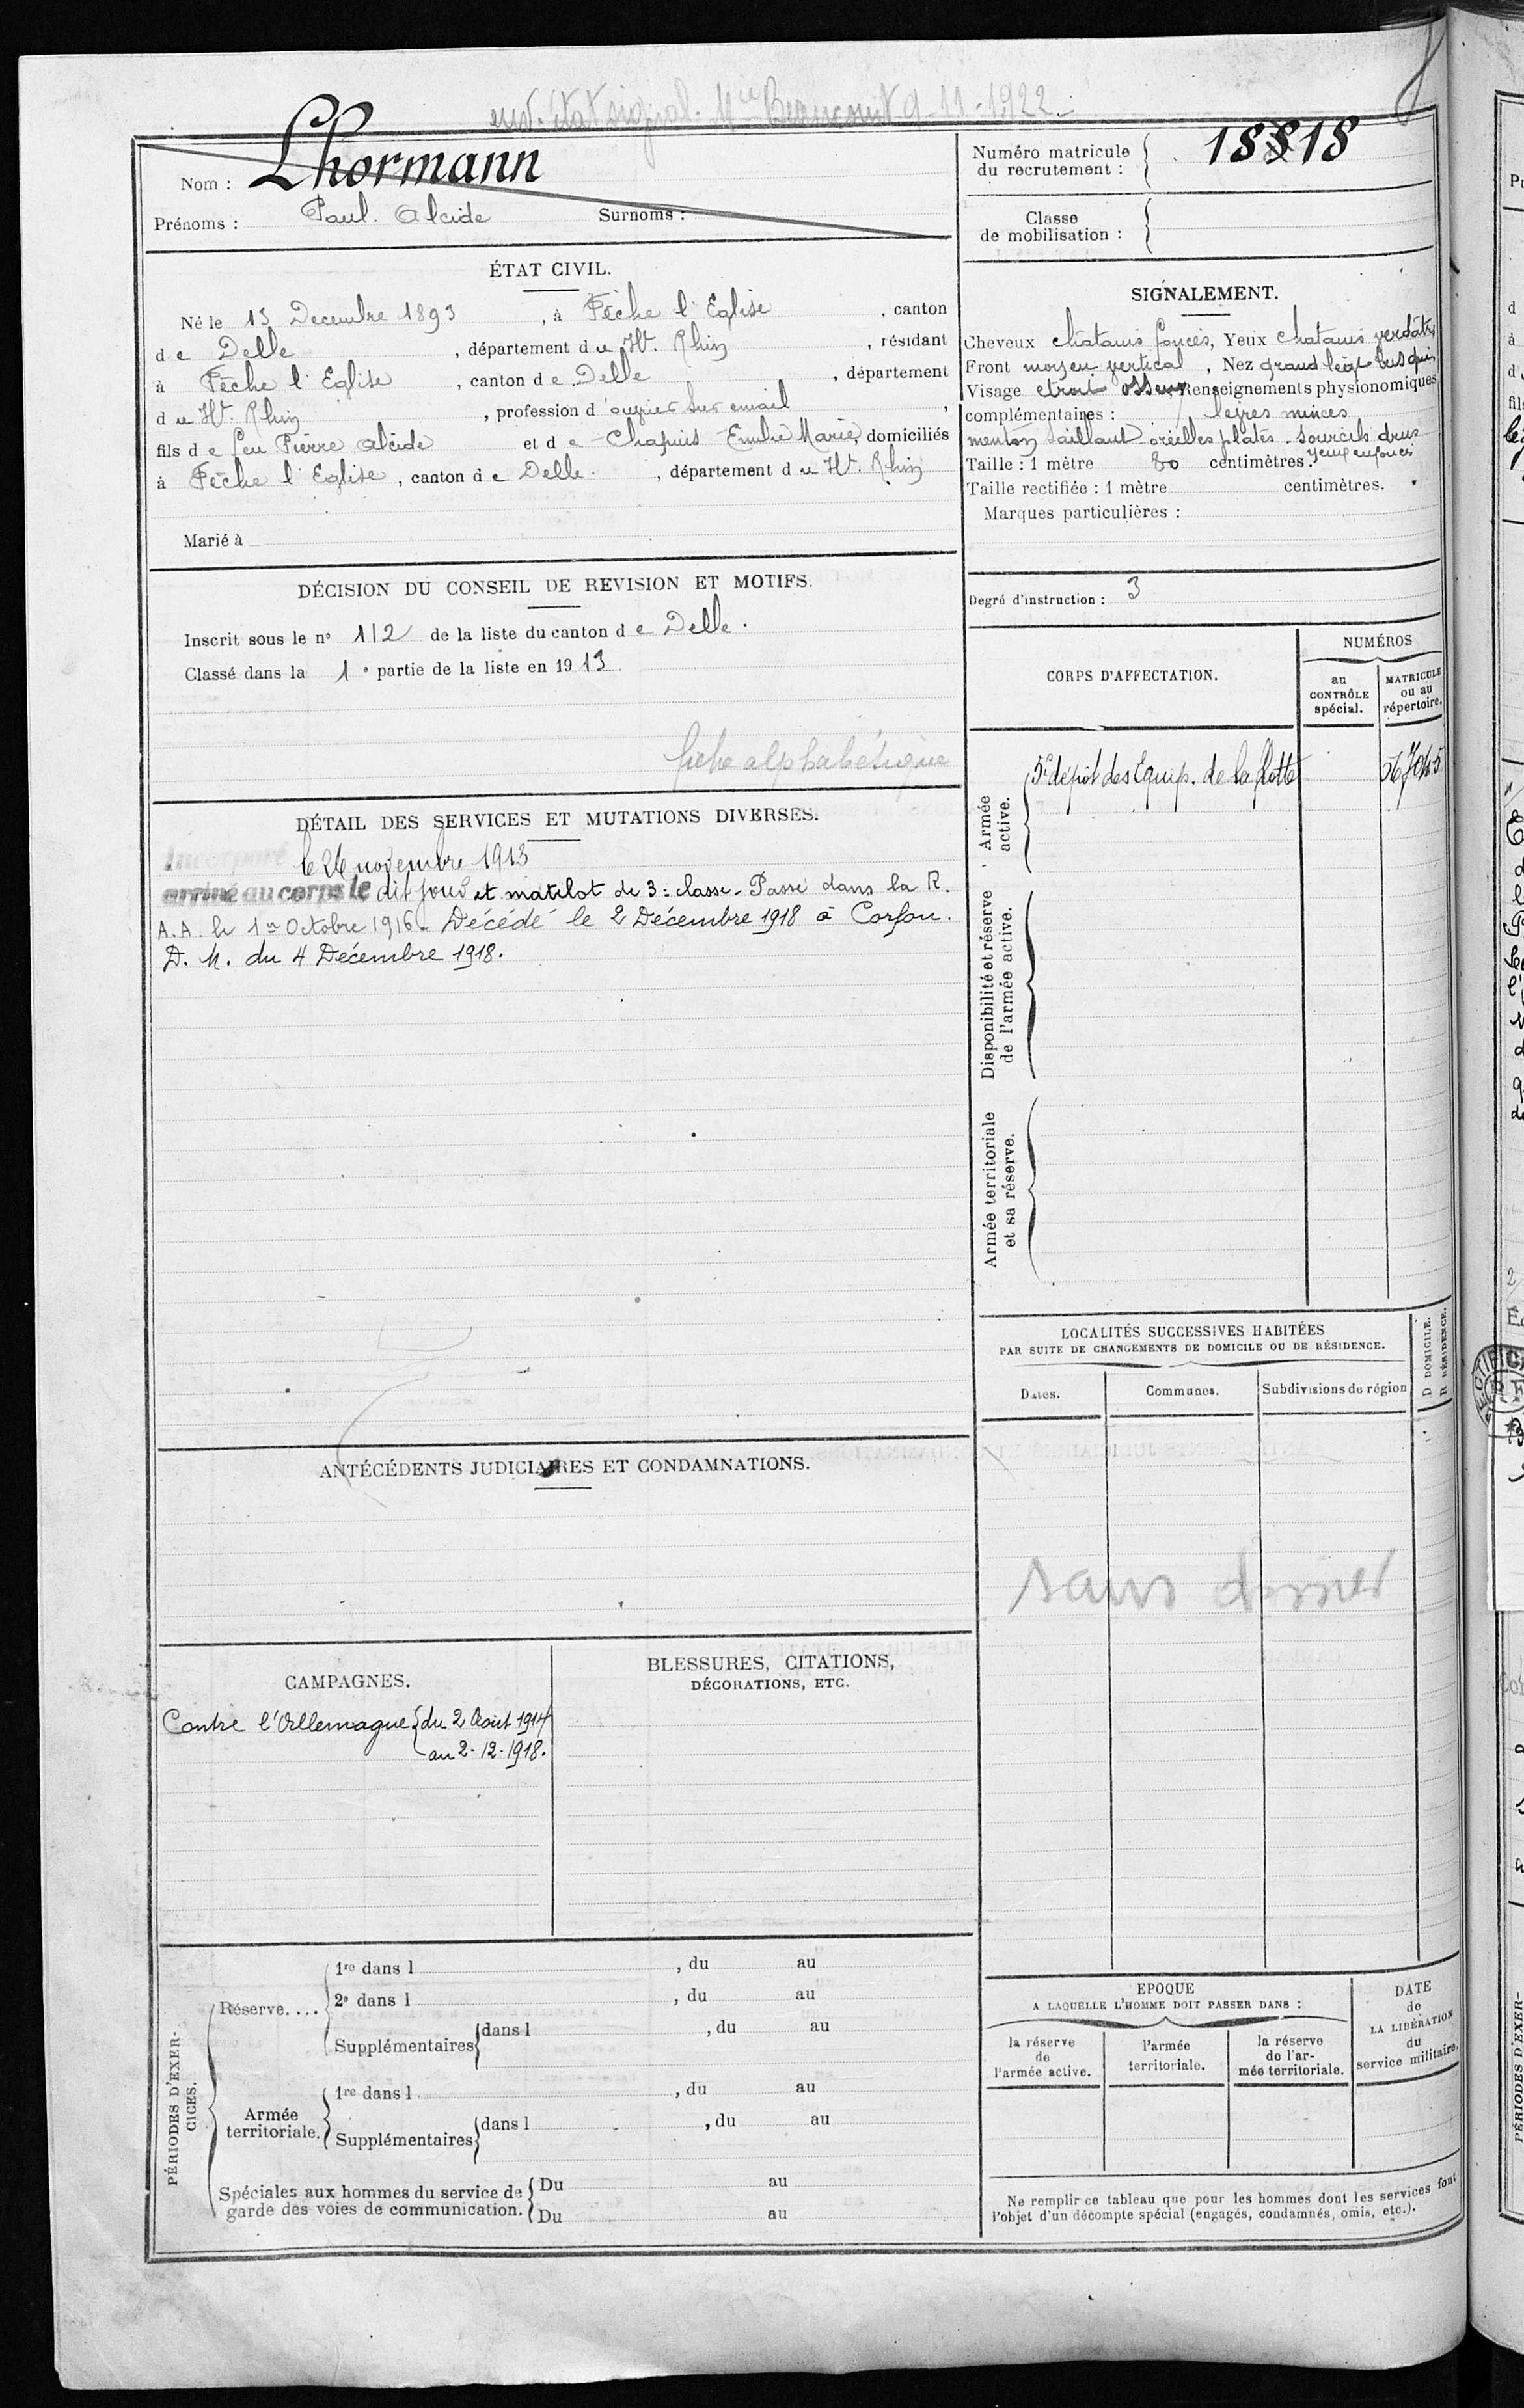 env. état signal. Mie Beaucourt 9-11-1922
Nom : Lhormann
Prénoms : Paul. Alcide Surnoms :
Numéro matricule du recrutement : 1818
Classe de mobilisation :
ÉTAT CIVIL.
Né le 13 Decembre 1893, à Fêche l'Eglise, canton
de Delle, département du Ht. Rhin, résidant
à Fêche l'Eglise, canton de Delle, département
du Ht. Rhin, profession d'ouvrier sur email,
fils de feu Pierre Alcide et de Chapuis Emilie Marie, domiciliés
à Fêche l'Eglise, canton de Delle, département du Ht. Rhin
Marié à
SIGNALEMENT.
Cheveux chatains foncés, Yeux chatains verdâtres
Front moyen vertical, Nez grand légt busqué
Visage etroit osseux Renseignements physionomiques
complémentaires : lèvres minces
menton saillant oreilles plates sourcils drus
yeux enfoncés
Taille : 1 mètre 80 centimètres.
Taille rectifiée : 1 mètre centimètres.
Marques particulières :
Degré d'instruction : 3
DÉCISION DU CONSEIL DE REVISION ET MOTIFS.
Inscrit sous le no 112 de la liste du canton de Delle.
Classé dans la 1e partie de la liste en 1913
fiche alphabétique
CORPS D'AFFECTATION.
NUMÉROS
au CONTRÔLE spécial.
MATRICULE ou au répertoire.
Armée active.
5e dépôt des Equip. de la flotte
Disponibilité et réserve de l'armée active.
Armée territoriale et sa réserve.
DÉTAIL DES SERVICES ET MUTATIONS DIVERSES.
Incorporé le 26 novembre 1913
arrivé au corps le dit jour et matelot de 3e classe. Passé dans la R.
A. A. le 1er Octobre 1916. Décédé le 2 Décembre 1918 à Corfou.
D. M. du 4 Décembre 1918.
LOCALITÉS SUCCESSIVES HABITÉES
PAR SUITE DE CHANGEMENTS DE DOMICILE OU DE RÉSIDENCE.
Dates.
Communes.
Subdivisions de région
D DOMICILE.
R RÉSIDENCE.
sans dossier
ANTÉCÉDENTS JUDICIAIRES ET CONDAMNATIONS.
CAMPAGNES.
Contre l'Allemagne du 2 Août 1914
au 2-12-1918.
BLESSURES, CITATIONS,
DÉCORATIONS, ETC.
PÉRIODES D'EXERCICES.
Réserve....
1re dans l , du au
2e dans l , du au
Supplémentaires dans l , du au
Armée territoriale.
1re dans l , du au
Supplémentaires dans l , du au
Spéciales aux hommes du service de
garde des voies de communication.
Du au
Du au
EPOQUE
A LAQUELLE L'HOMME DOIT PASSER DANS :
la réserve de l'armée active.
l'armée territoriale.
la réserve de l'armée territoriale.
DATE de LA LIBÉRATION du service militaire.
Ne remplir ce tableau que pour les hommes dont les services font
l'objet d'un décompte spécial (engagés, condamnés, omis, etc.).